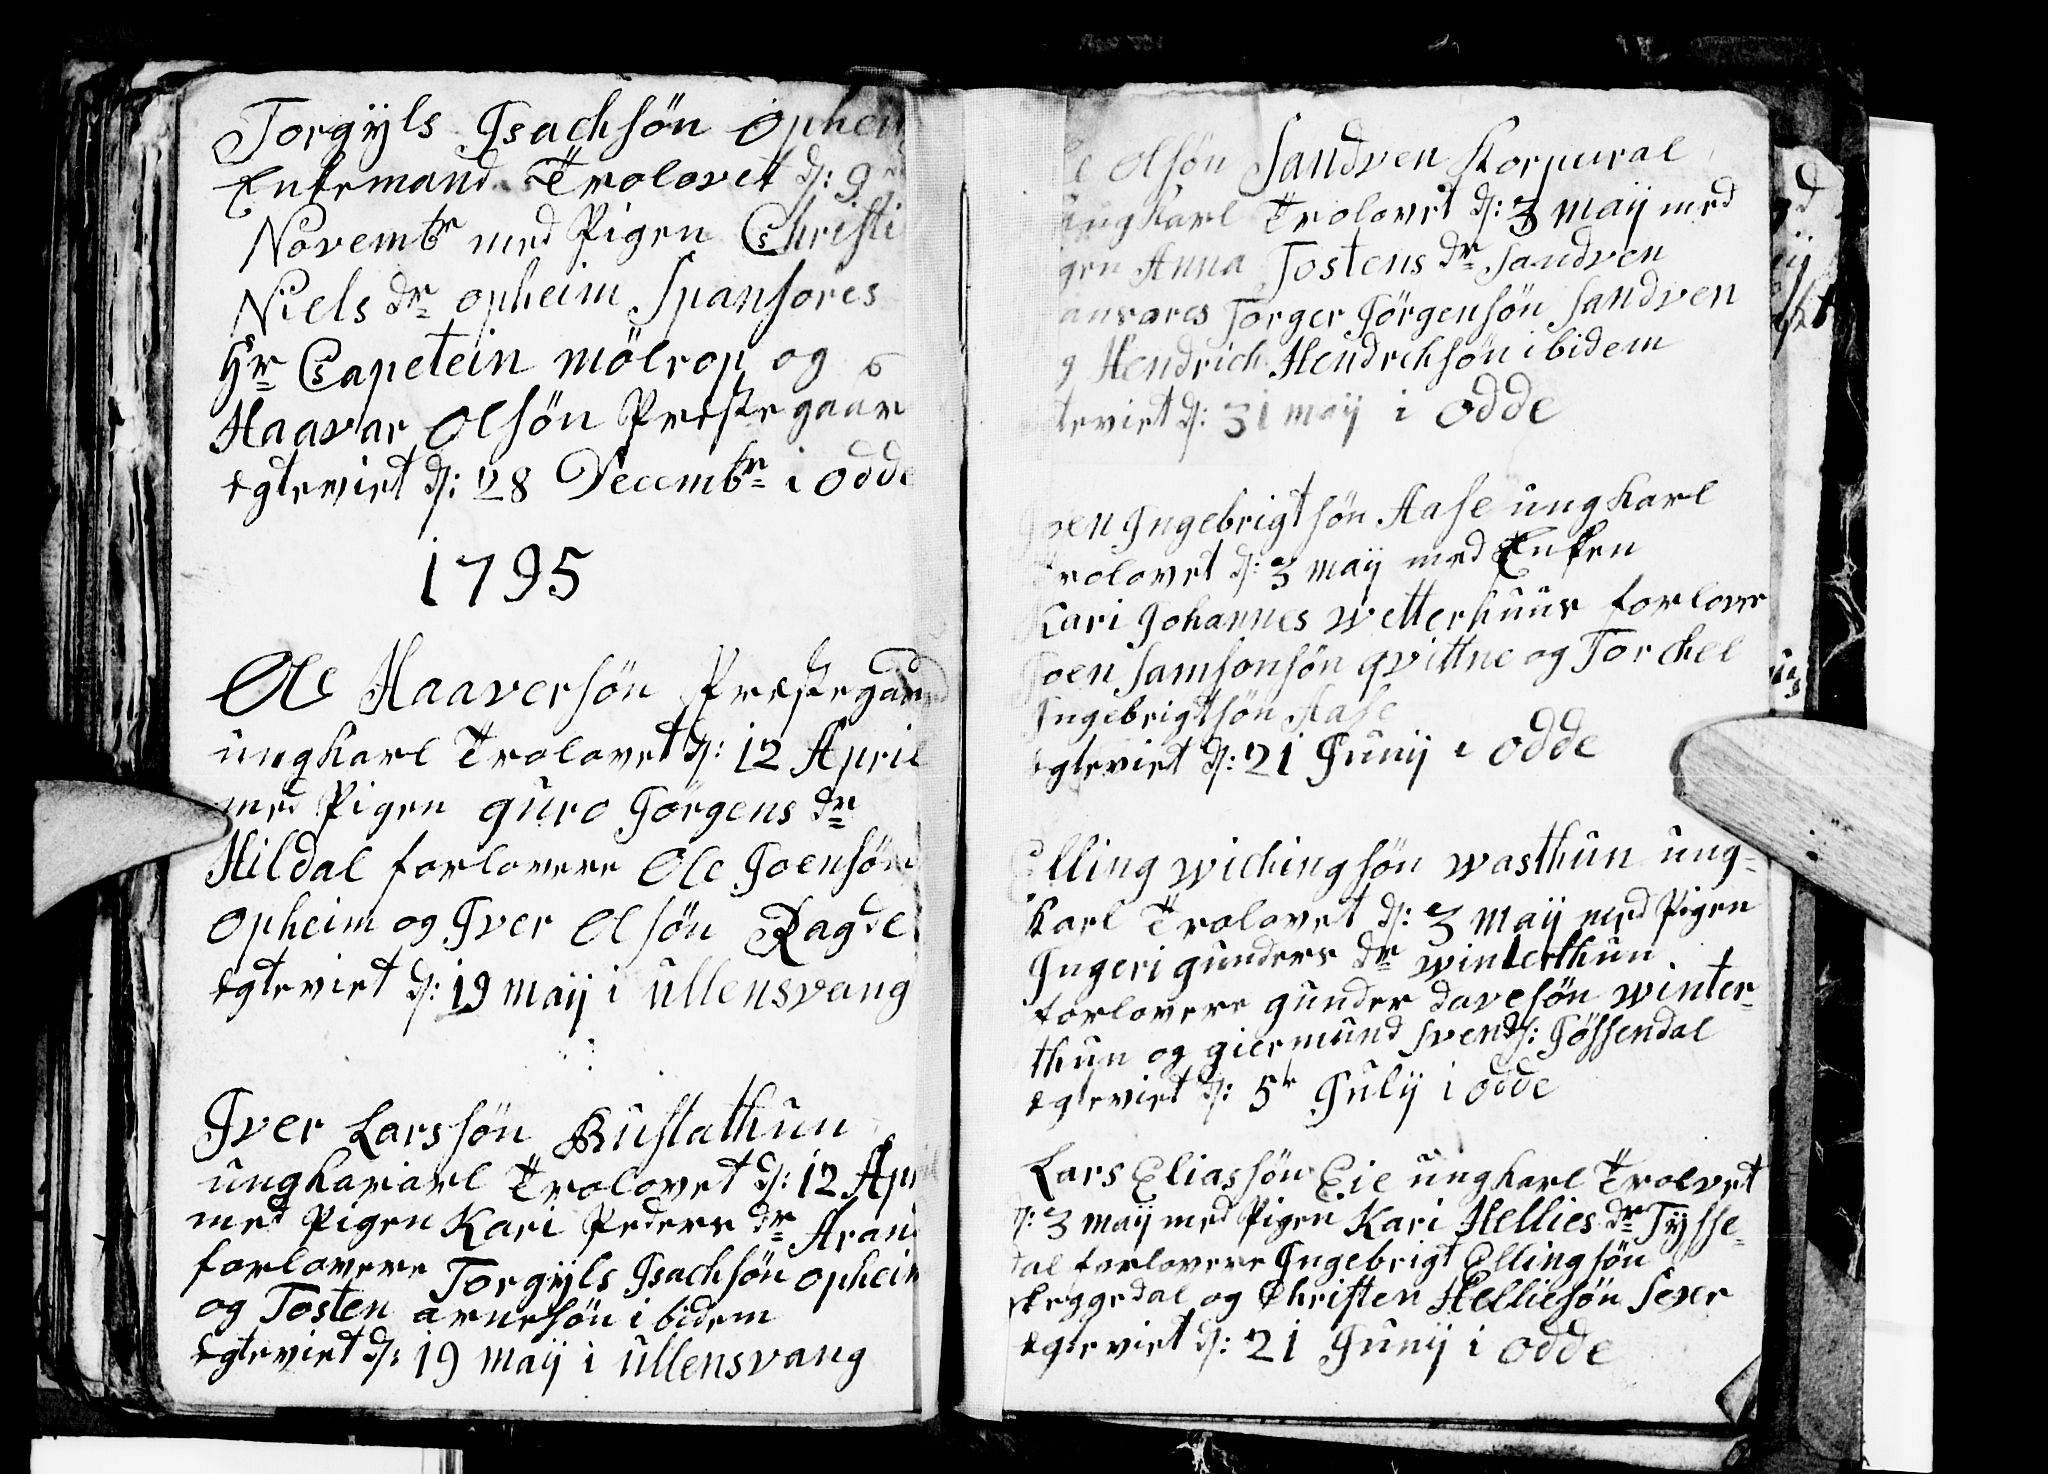 Torgÿls Jsachsön Ophei
Enkemand Trolovet d: 9
Novembr med Pigen Christi
Niels dr opheim Spansores
Hr Capetein mölrop og
Haavar Olsön Prestegaar
egteviet d: 28 Decembr i Odde
1795
Ole Haaversön Præstegaard
ungkarl Trolovet d: 12 April
med Pigen guro Jörgens dr
Hildal forlovere Ole Joensön
Opheim og Jver Olsön Ragde
egteviet d: 19 maij i ullensvang
Jver Larssön Bustathun
ungkariarl Trolovet d: 12 Apr
med Pigen Kari Peders dr Aran
forlovere Torgÿls Jsachsön opheim
og Tosten arnesön ibidem
egteviet d: 19 maij i ullensvang
le Olsön Sandven Korpural
ungkarl Trolovet d: 3 maij med
gen Anna Tostens dr Sandven
ansores Torger Jörgensön Sandven
g Hendrich Hendrchsön ibidem
teviet d: 31 maij i Odde
Joen Jngebrigtsön Aase ungkarl
Trolovet d: 3 maij med Enken
Kari Johannes wetterhuus forlover
Joen Samsonsön qvittne og Torchel
Jngebrigtsön Aase
egteviet d: 21 Junij i Odde
Elling wichingsön wasthun ung-
karl Trolovet d: 3 maij med Pigen
Jngeri gunders dr winterthun
forlovere gunder davesön winter-
thun og giermund Svends: Jössendal
egteviet d: 5t Julij i Odde
Lars Eliassön Eie ungkarl Trolvet
d: 3 maij med Pigen Kari Hellies dr Tÿsse-
dal forlovere Jngebrigt Ellingsön
skeggedal og Christen Helliesön Sexe
egteviet d: 21 Junij i Odde